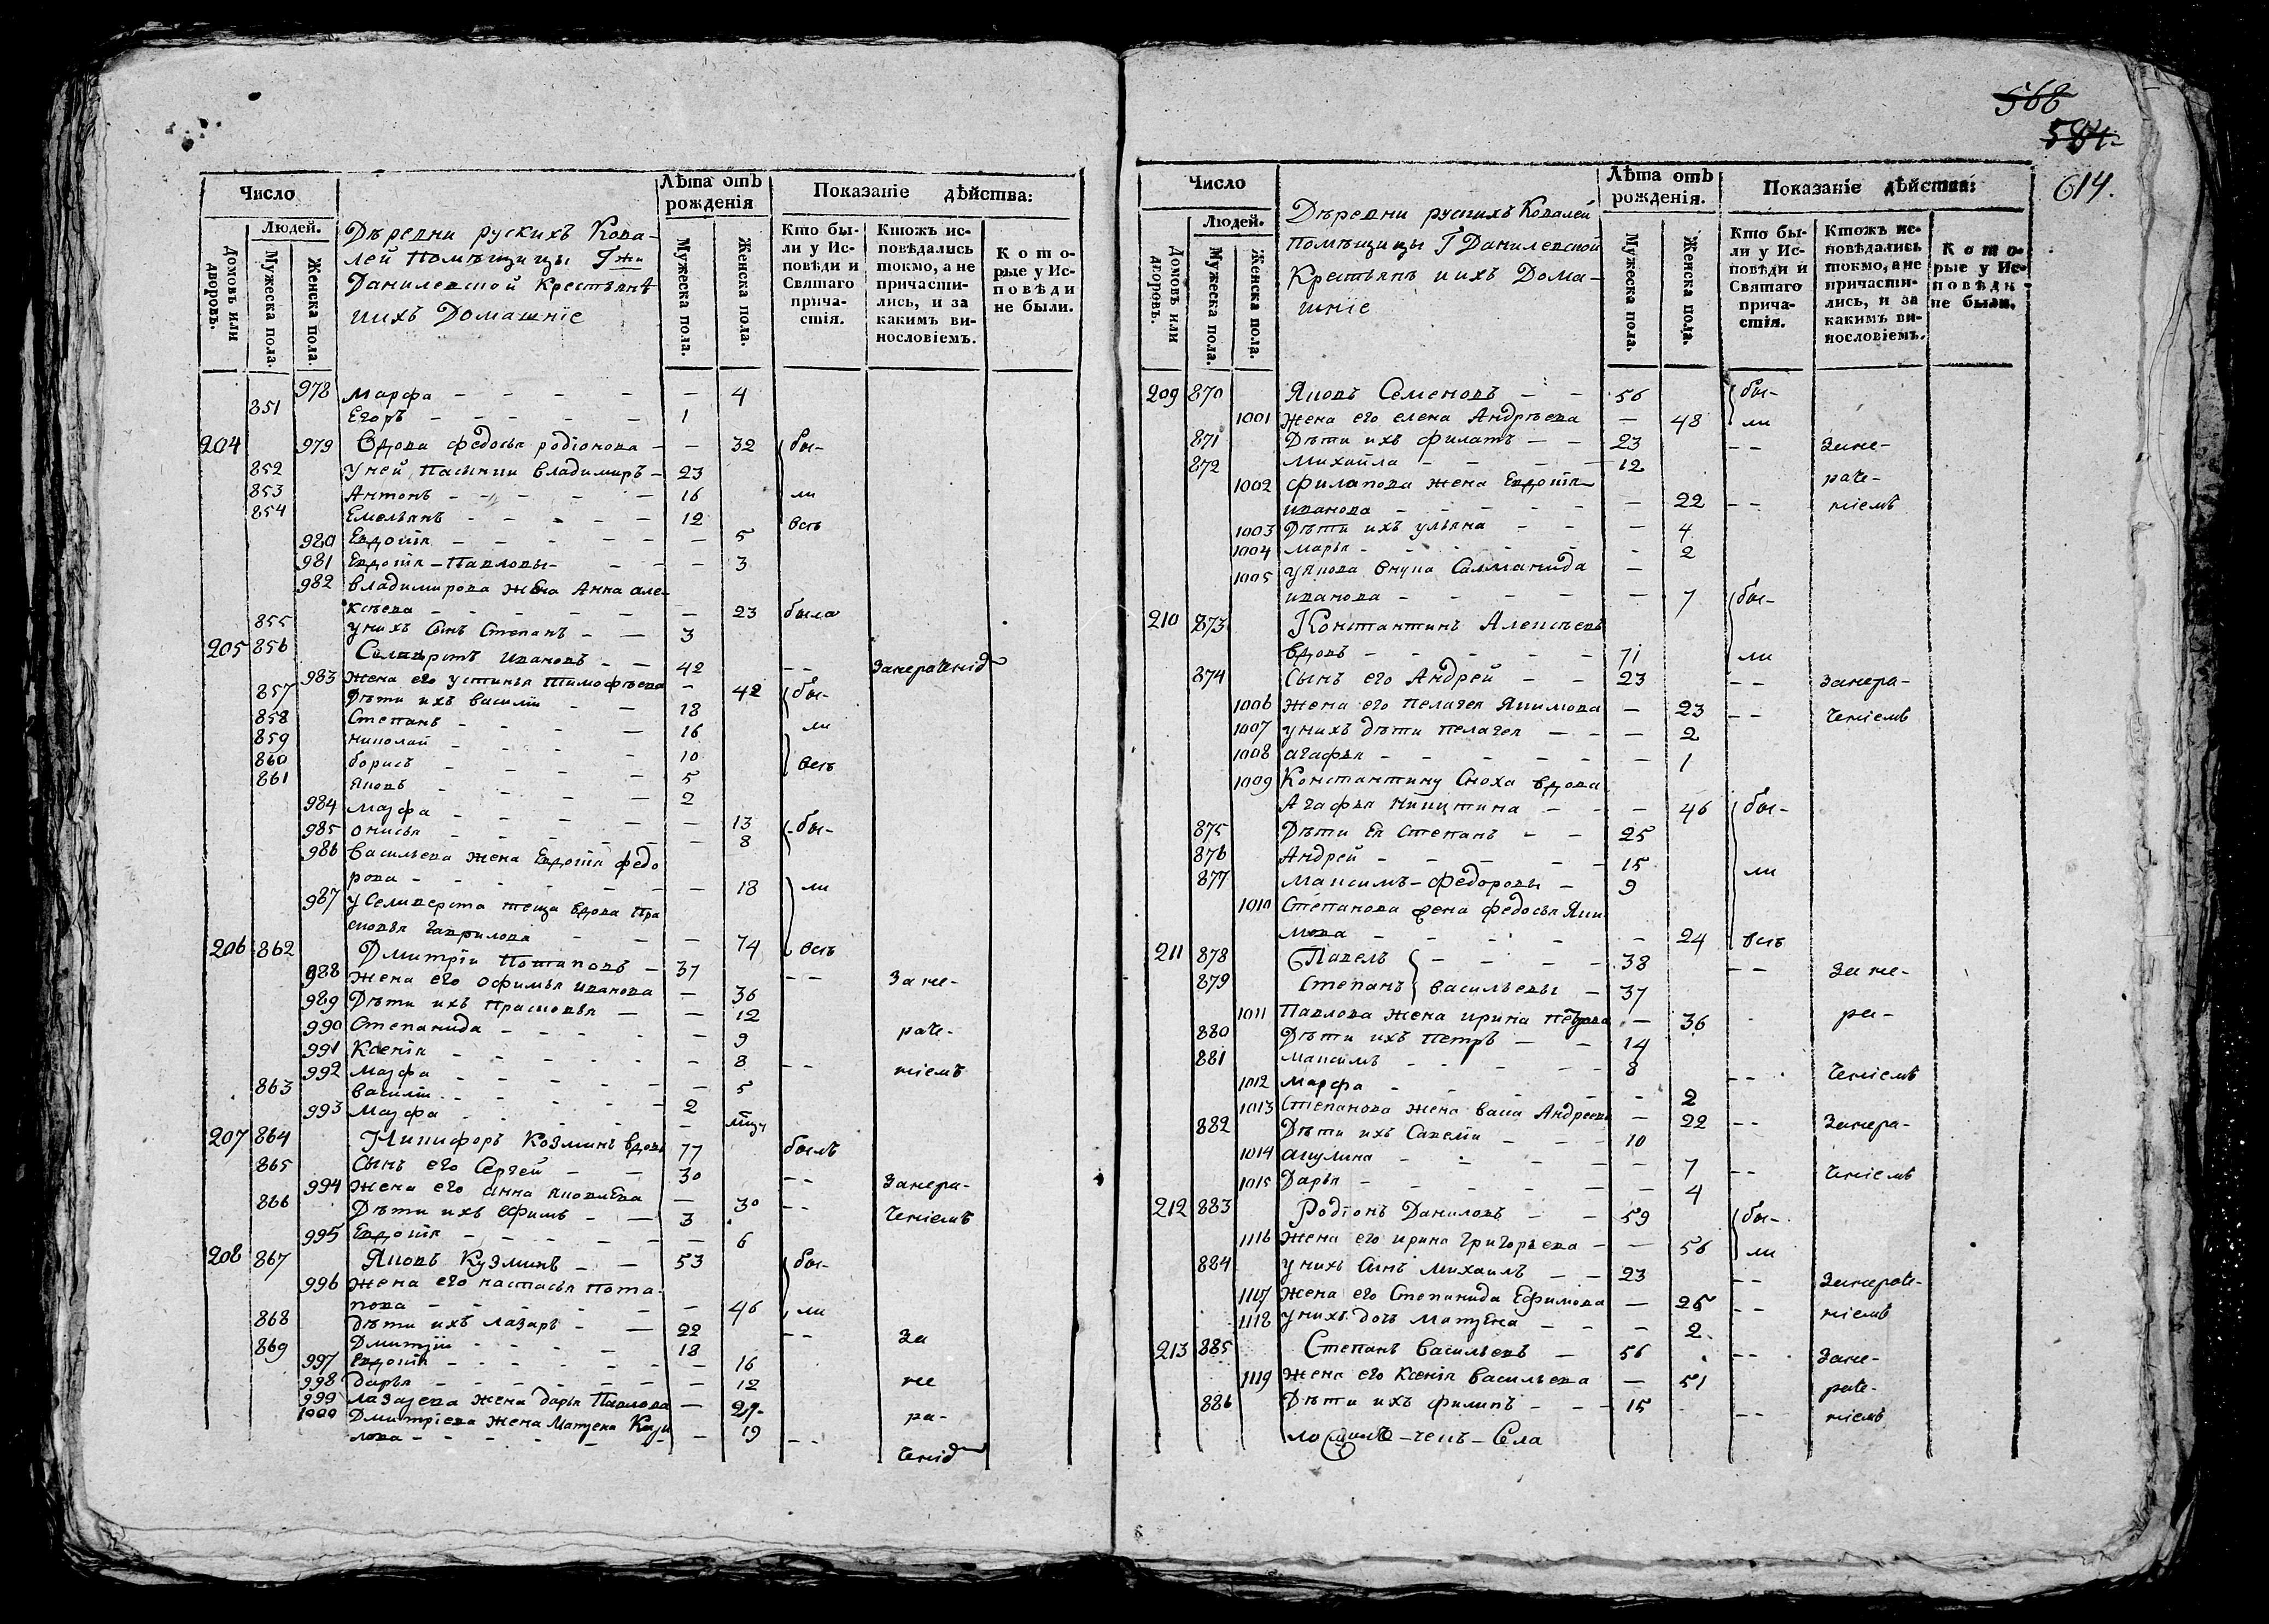 568
584
614.
Число
Людей.
Домовъ или дворовъ.
Мужеска пола.
Женска пола.
Деревни рускихъ Кова-
лей помѣщицы Гжи
Данилевской Крестьянѣ
иихъ Домашніе
Лѣта отъ рожденія
Мужеска пола.
Женска пола.
Показаніе дѣйства:
Кто бы-
ли у Ис-
повѣди и
Святаго
прича-
стія.
Ктожъ ис-
повѣдались
токмо, а не
причасти-
лись, и за
какимъ ви-
нословіемъ.
Кото-
рые у Ис-
повѣди
не были.
978 Марфа — 4
851 Егоръ — 1
204 979 Вдова федосья родіонова — 32 бы-
852 Уней Пасынки владимиръ — 23
853 Антонъ — 16 ли
854 Емельянъ — 12 всѣ
980 Евдокія — 5
981 Евдокія — Павловы — 3
982 владимирова жена Анна але-
ксѣева — 23 была
855 Унихъ Сынъ Степанъ — 3
205 856 Селиверстъ ивановъ — 42 -- Занераченіемъ
983 Жена его устинья тимофѣева — 42 бы-
857 Дѣти ихъ василій — 18
858 Степанъ — 16 ли
859 николай — 10
860 борисъ — 5 всѣ
861 яковъ — 2
984 Марфа — 13 бы-
985 онисья — 8
986 васильева жена Евдокія федо
рова — 18 ли
987 У Селиверста теща вдова Пра
сковья гаврилова — 74 всѣ
206 862 Дмитрій Потаповъ — 37 -- За не-
988 Жена его офимья иванова — 36
989 Дѣти ихъ Прасковья — 12
990 Степанида — 9 раче-
991 Ксенія — 8
992 Марфа — 5 -- ніемъ
863 василій — 2
993 Марфа —
207 864 Никифоръ Козминъ вдовъ 77 былъ
865 Сынъ его Сергей — 30 -- Занера-
994 Жена его анна яковлева — 30 -- ченіемъ
866 Дѣти ихъ ефимъ — 3
995 Евдокія — 6
208 867 Яковъ Кузминъ — 53 бы-
996 Жена его настасья пота-
пова — 46 ли
868 Дѣти ихъ лазарь — 22 -- За
869 Дмитрій — 18
997 Евдокія — 16
998 дарья — 12 не
999 лазарева жена дарья Павлова — 27 ра-
1000 Дмитріева жена Матрена Кири
лова — 19 -- ченіемъ
Число
Людей.
Домовъ или дворовъ.
Мужеска пола.
Женска пола.
Деревни рускихъ Ковалей
помѣщицы Г Данилевской
Крестьянѣ иихъ Дома-
шніе
Лѣта отъ рожденія.
Мужеска пола.
Женска пола.
Показаніе дѣйства:
Кто бы-
ли у Ис-
повѣди и
Святаго
прича-
стія.
Ктожъ ис-
повѣдались
токмо, а не
причасти-
лись, и за
какимъ ви-
нословіемъ.
Кото-
рые у Ис-
повѣди
не были.
209 870 Яковъ Семеновъ — 56 бы-
1001 Жена его елена Андрѣева — 48 ли
871 Дѣти ихъ филатъ — 23 -- Зане-
872 Михайла — 12
1002 филатова жена Евдокія раче-
иванова — 22 -- ніемъ
1003 Дѣти ихъ ульяна — 4
1004 марья — 2
1005 уякова внука Саломанида —
иванова — 7 бы-
210 873 Константинъ Алексѣевъ
вдовъ — 71 ли
874 Сынъ его Андрей — 23 -- занера-
1006 жена его пелагея Якимова — 23 -- ченіемъ
1007 унихъ дѣти пелагея — 2
1008 агафья — 1
1009 Константину Сноха вдова
Агафья никитина — 46 бы-
875 Дѣти Ея Степанъ — 25
876 Андрей — 15 ли
877 Максимъ — федоровы — 9
1010 Степанова жена федосья Яки
мова — 24 всѣ
211 878 Павелъ — 38 -- За не-
879 Степанъ васильевы — 37
1011 Павлова жена ирина петрова — 36 ра-
880 Дѣти ихъ петръ — 14
881 максимъ — 8 -- ченіемъ
1012 марфа — 2
1013 Степанова жена васа Андреева — 22 -- Занера-
882 Дѣти ихъ Савелій — 10
1014 акулина — 7 -- ченіемъ
1015 Дарья — 4
212 883 Родіонъ Даниловъ — 59 бы-
1116 Жена его ирина григорьева — 56 ли
884 унихъ сынъ михаилъ — 23 -- Занераче-
1117 Жена его Степанида Ефимова — 25 -- ніемъ
1118 унихъ дочь матрена — 2
213 885 Степанъ васильевъ — 56 -- Зане-
1119 Жена его Ксенія васильева — 51 раче-
886 Дѣти ихъ филипъ — 15 -- ніемъ
Села